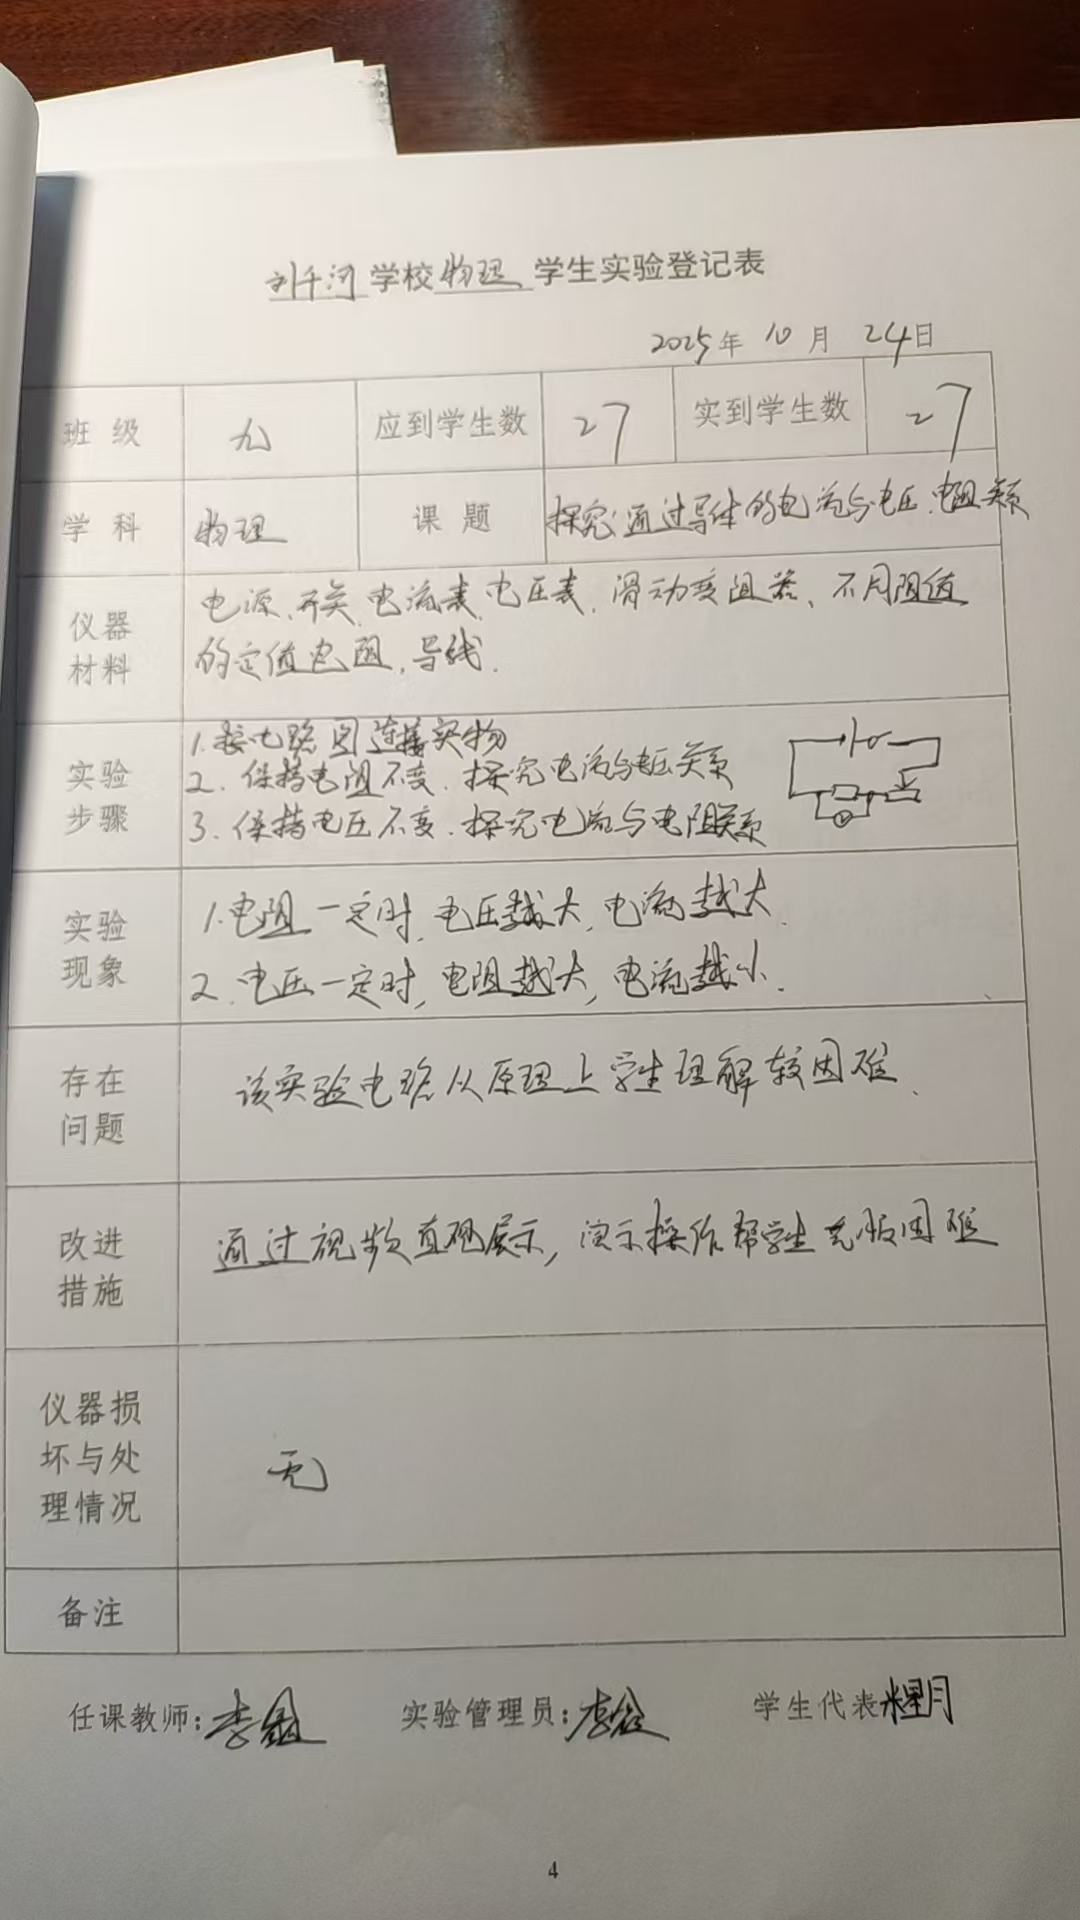 刘千河学校物理学生实验登记表
2025年10月24日
班级 九 应到学生数 27 实到学生数 27
学科 物理 课题 探究:通过导体的电流与电压、电阻关系
仪器材料 电源、开关、电流表、电压表、滑动变阻器、不同阻值
的定值电阻,导线.
实验步骤 1.按电路图连接实物
2.保持电阻不变.探究电流与电压关系
3.保持电压不变.探究电流与电阻关系
V
实验现象 1.电阻一定时,电压越大,电流越大.
2.电压一定时,电阻越大,电流越小.
存在问题 该实验电路从原理上学生理解较困难.
改进措施 通过视频直观展示,演示操作帮学生克服困难
仪器损坏与处理情况 无
备注
任课教师:李 实验管理员:李 学生代表
4